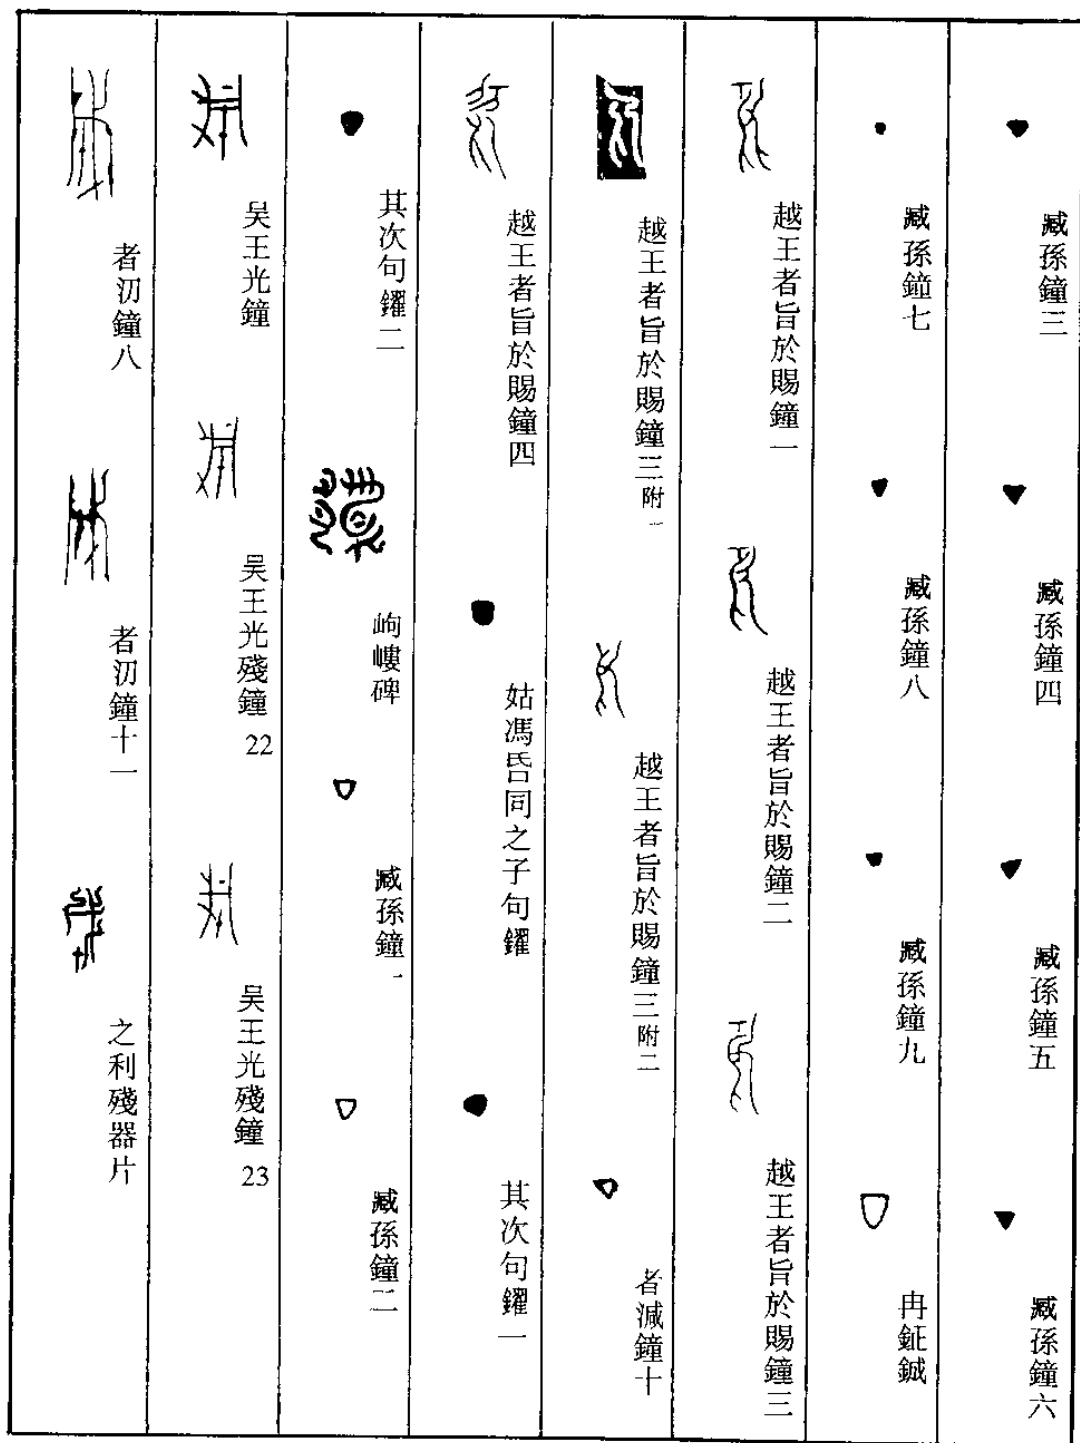 臧孫鐘三
臧孫鐘四
臧孫鐘五
臧孫鐘六
臧孫鐘七
臧孫鐘八
臧孫鐘九
冉鉦鋮
越王者旨於賜鐘一
越王者旨於賜鐘二
越王者旨於賜鐘三
越王者旨於賜鐘三附一
越王者旨於賜鐘三附二
者減鐘十
越王者旨於賜鐘四
姑馮昏同之子句鑃
其次句鑃一
其次句鑃二
岣嶁碑
臧孫鐘一
臧孫鐘二
吴王光鐘
吴王光殘鐘 22
吴王光殘鐘 23
者汈鐘八
者汈鐘十一
之利殘器片